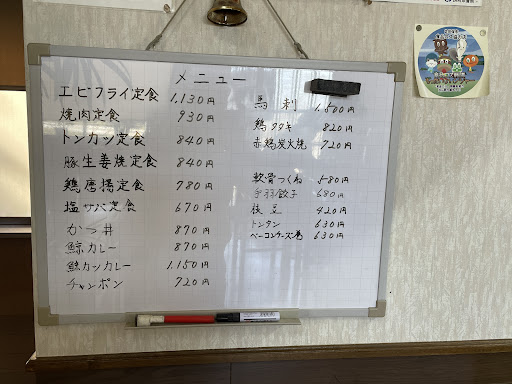 メニュー
エビフライ定食 1,130円
焼肉定食 930円
トンカツ定食 840円
豚生姜焼定食 840円
鶏唐揚定食 780円
塩サバ定食 670円
かつ丼 870円
鯨カレー 870円
鯨カツカレー 1,150円
チャンポン 720円
馬刺 1,500円
鶏タタキ 820円
赤鶏炭火焼 720円
軟骨つくね 580円
手羽餃子 680円
枝豆 420円
トンタン 630円
ベーコンチーズ巻 630円